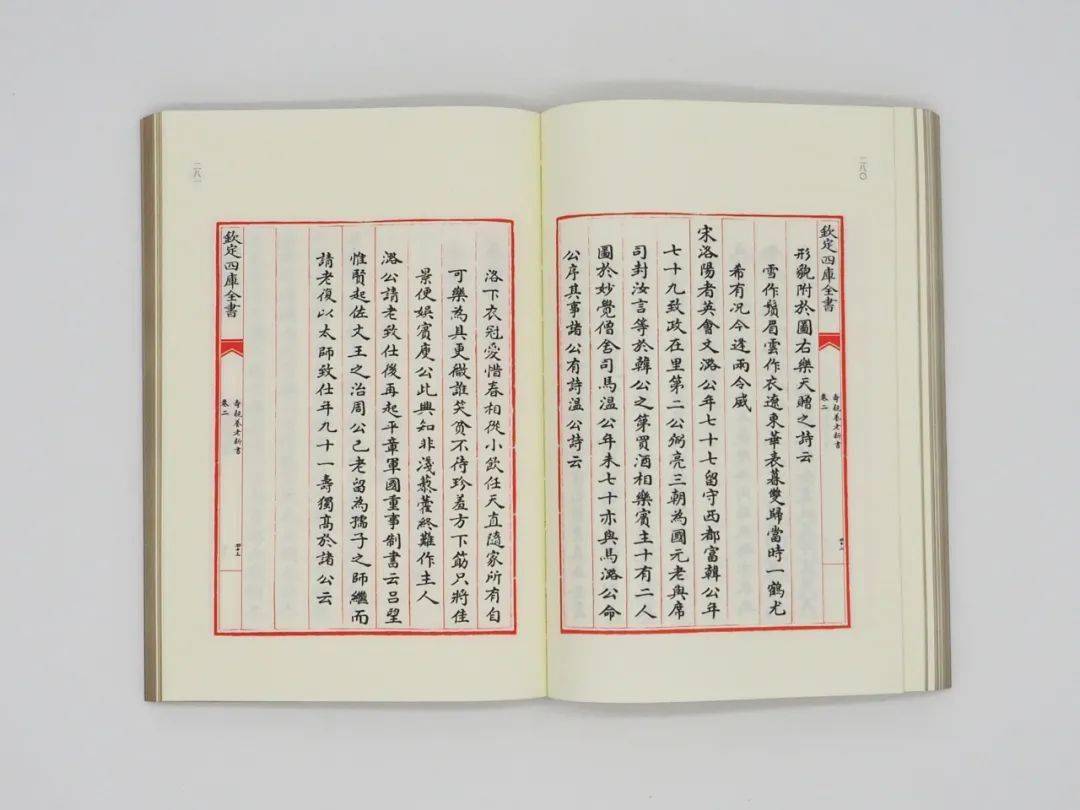 二八〇
欽定四庫全書
卷二
壽親養老新書
形貌附於圖右樂天贈之詩云
雪作鬚眉雲作衣遼東華表暮雙歸當時一鶴尤
希有況今逢兩令威
宋洛陽耆英會文潞公年七十七留守西都富韓公年
七十九致政在里第二公弼亮三朝為國元老與席
司封汝言等於韓公之第買酒相樂賓主十有二人
圖於妙覺僧舍司馬溫公年未七十亦與焉潞公命
公序其事諸公有詩溫公詩云
洛下衣冠愛惜春相從小飲任天真隨家所有自
可樂為具更微誰笑貧不待珍羞方下筯只將佳
景便娛賓庾公此興知非淺藜藿終難作主人
潞公請老致仕後再起平章軍國重事制書云呂望
惟賢起佐文王之治周公已老留為孺子之師繼而
請老復以太師致仕年九十一壽獨高於諸公云
二八一
欽定四庫全書
壽親養老新書
卷二